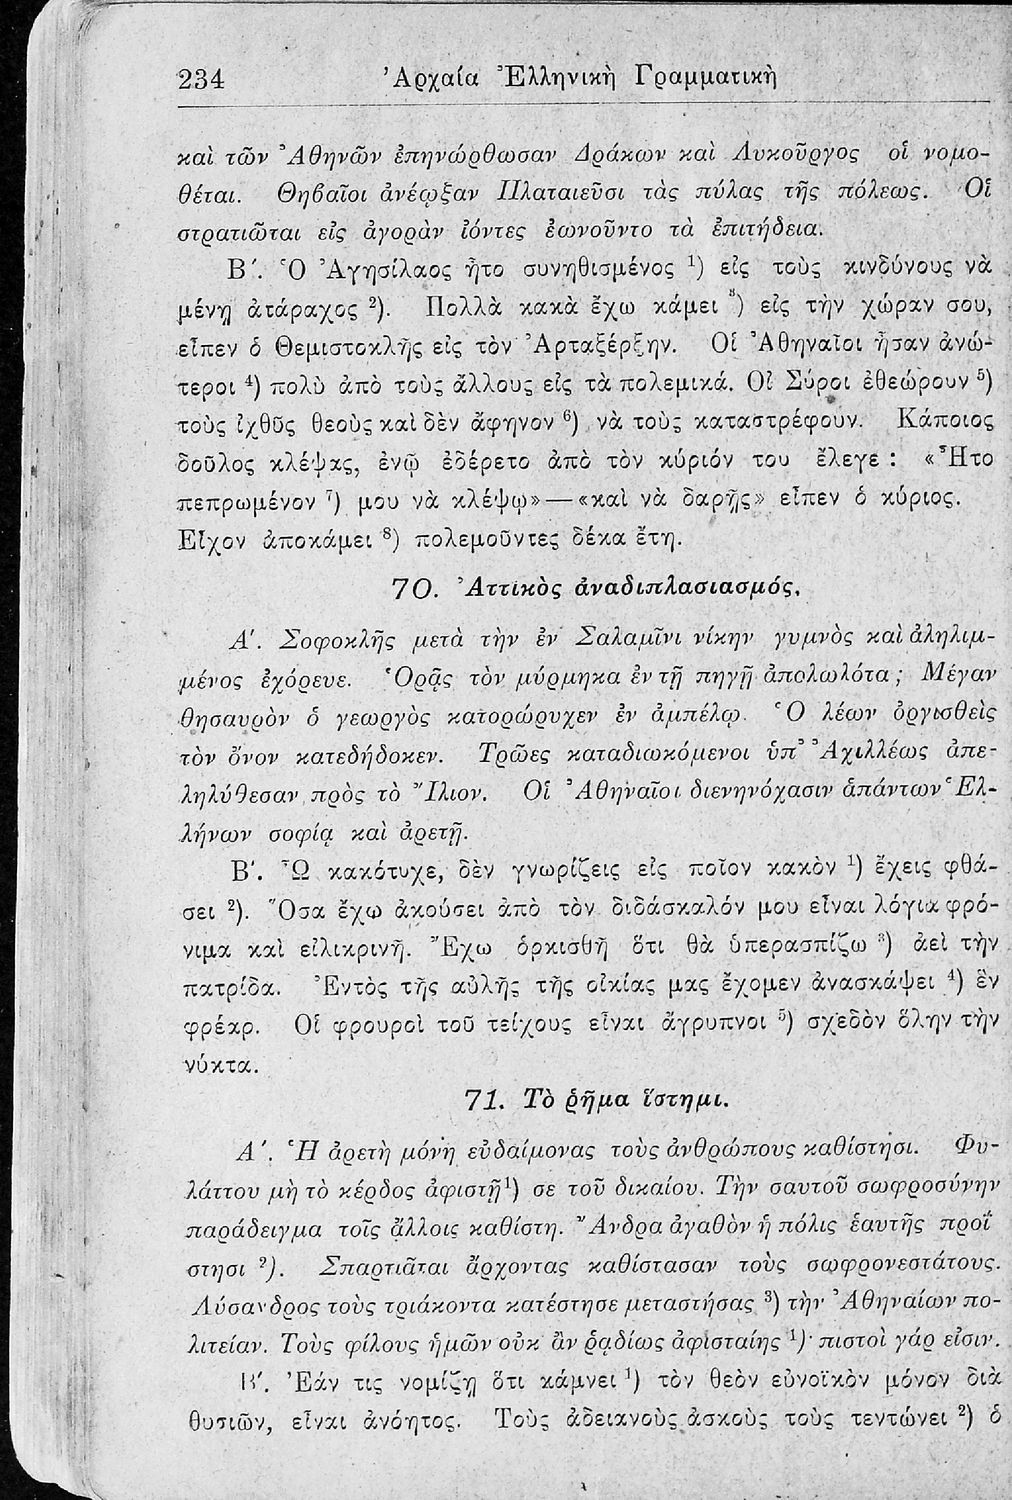 234 Ἀρχαία Ἑλληνικὴ Γραμματικὴ
καὶ τῶν Ἀθηνῶν ἐπηνώρθωσαν Δράκων καὶ Λυκοῦργος οἱ νομο-
θέται. Θηβαῖοι ἀνέῳξαν Πλαταιεῦσι τὰς πύλας τῆς πόλεως. Οἱ
στρατιῶται εἰς ἀγορὰν ἰόντες ἐωνοῦντο τὰ ἐπιτήδεια.
Β΄. Ὁ Ἀγησίλαος ἦτο συνηθισμένος ¹) εἰς τοὺς κινδύνους νὰ
μένῃ ἀτάραχος ²). Πολλὰ κακὰ ἔχω κάμει ³) εἰς τὴν χώραν σου,
εἶπεν ὁ Θεμιστοκλῆς εἰς τὸν Ἀρταξέρξην. Οἱ Ἀθηναῖοι ἦσαν ἀνώ-
τεροι ⁴) πολὺ ἀπὸ τοὺς ἄλλους εἰς τὰ πολεμικά. Οἱ Σύροι ἐθεώρουν ⁵)
τοὺς ἰχθῦς θεοὺς καὶ δὲν ἄφηνον ⁶) νὰ τοὺς καταστρέφουν. Κάποιος
δοῦλος κλέψας, ἐνῷ ἐδέρετο ἀπὸ τὸν κύριόν του ἔλεγε : «Ἦτο
πεπρωμένον ⁷) μου νὰ κλέψω» — «καὶ νὰ δαρῇς» εἶπεν ὁ κύριος.
Εἶχον ἀποκάμει ⁸) πολεμοῦντες δέκα ἔτη.
70. Ἀττικὸς ἀναδιπλασιασμός.
Α΄. Σοφοκλῆς μετὰ τὴν ἐν Σαλαμῖνι νίκην γυμνὸς καὶ ἀληλιμ-
μένος ἐχόρευε. Ὁρᾷς τὸν μύρμηκα ἐν τῇ πηγῇ ἀπολωλότα ; Μέγαν
θησαυρὸν ὁ γεωργὸς κατορώρυχεν ἐν ἀμπέλῳ. Ὁ λέων ὀργισθεὶς
τὸν ὄνον κατεδήδοκεν. Τρῶες καταδιωκόμενοι ὑπ' Ἀχιλλέως ἀπε-
ληλύθεσαν πρὸς τὸ Ἴλιον. Οἱ Ἀθηναῖοι διενηνόχασιν ἁπάντων Ἑλ-
λήνων σοφίᾳ καὶ ἀρετῇ.
Β΄. Ὦ κακότυχε, δὲν γνωρίζεις εἰς ποῖον κακὸν ¹) ἔχεις φθά-
σει ²). Ὅσα ἔχω ἀκούσει ἀπὸ τὸν διδάσκαλόν μου εἶναι λόγια φρό-
νιμα καὶ εἰλικρινῆ. Ἔχω ὁρκισθῆ ὅτι θὰ ὑπερασπίζω ³) ἀεὶ τὴν
πατρίδα. Ἐντὸς τῆς αὐλῆς τῆς οἰκίας μας ἔχομεν ἀνασκάψει ⁴) ἓν
φρέαρ. Οἱ φρουροὶ τοῦ τείχους εἶναι ἄγρυπνοι ⁵) σχεδὸν ὅλην τὴν
νύκτα.
71. Τὸ ῥῆμα ἵστημι.
Α΄. Ἡ ἀρετὴ μόνη εὐδαίμονας τοὺς ἀνθρώπους καθίστησι. Φυ-
λάττου μὴ τὸ κέρδος ἀφιστῇ ¹) σε τοῦ δικαίου. Τὴν σαυτοῦ σωφροσύνην
παράδειγμα τοῖς ἄλλοις καθίστη. Ἄνδρα ἀγαθὸν ἡ πόλις ἑαυτῆς προΐ
στησι ²). Σπαρτιᾶται ἄρχοντας καθίστασαν τοὺς σωφρονεστάτους.
Λύσανδρος τοὺς τριάκοντα κατέστησε μεταστήσας ³) τὴν Ἀθηναίων πο-
λιτείαν. Τοὺς φίλους ἡμῶν οὐκ ἂν ῥᾳδίως ἀφισταίης ¹)· πιστοὶ γάρ εἰσιν.
Β΄. Ἐάν τις νομίζῃ ὅτι κάμνει ¹) τὸν θεὸν εὐνοϊκὸν μόνον διὰ
θυσιῶν, εἶναι ἀνόητος. Τοὺς ἀδειανοὺς ἀσκοὺς τοὺς τεντώνει ²) ὁ